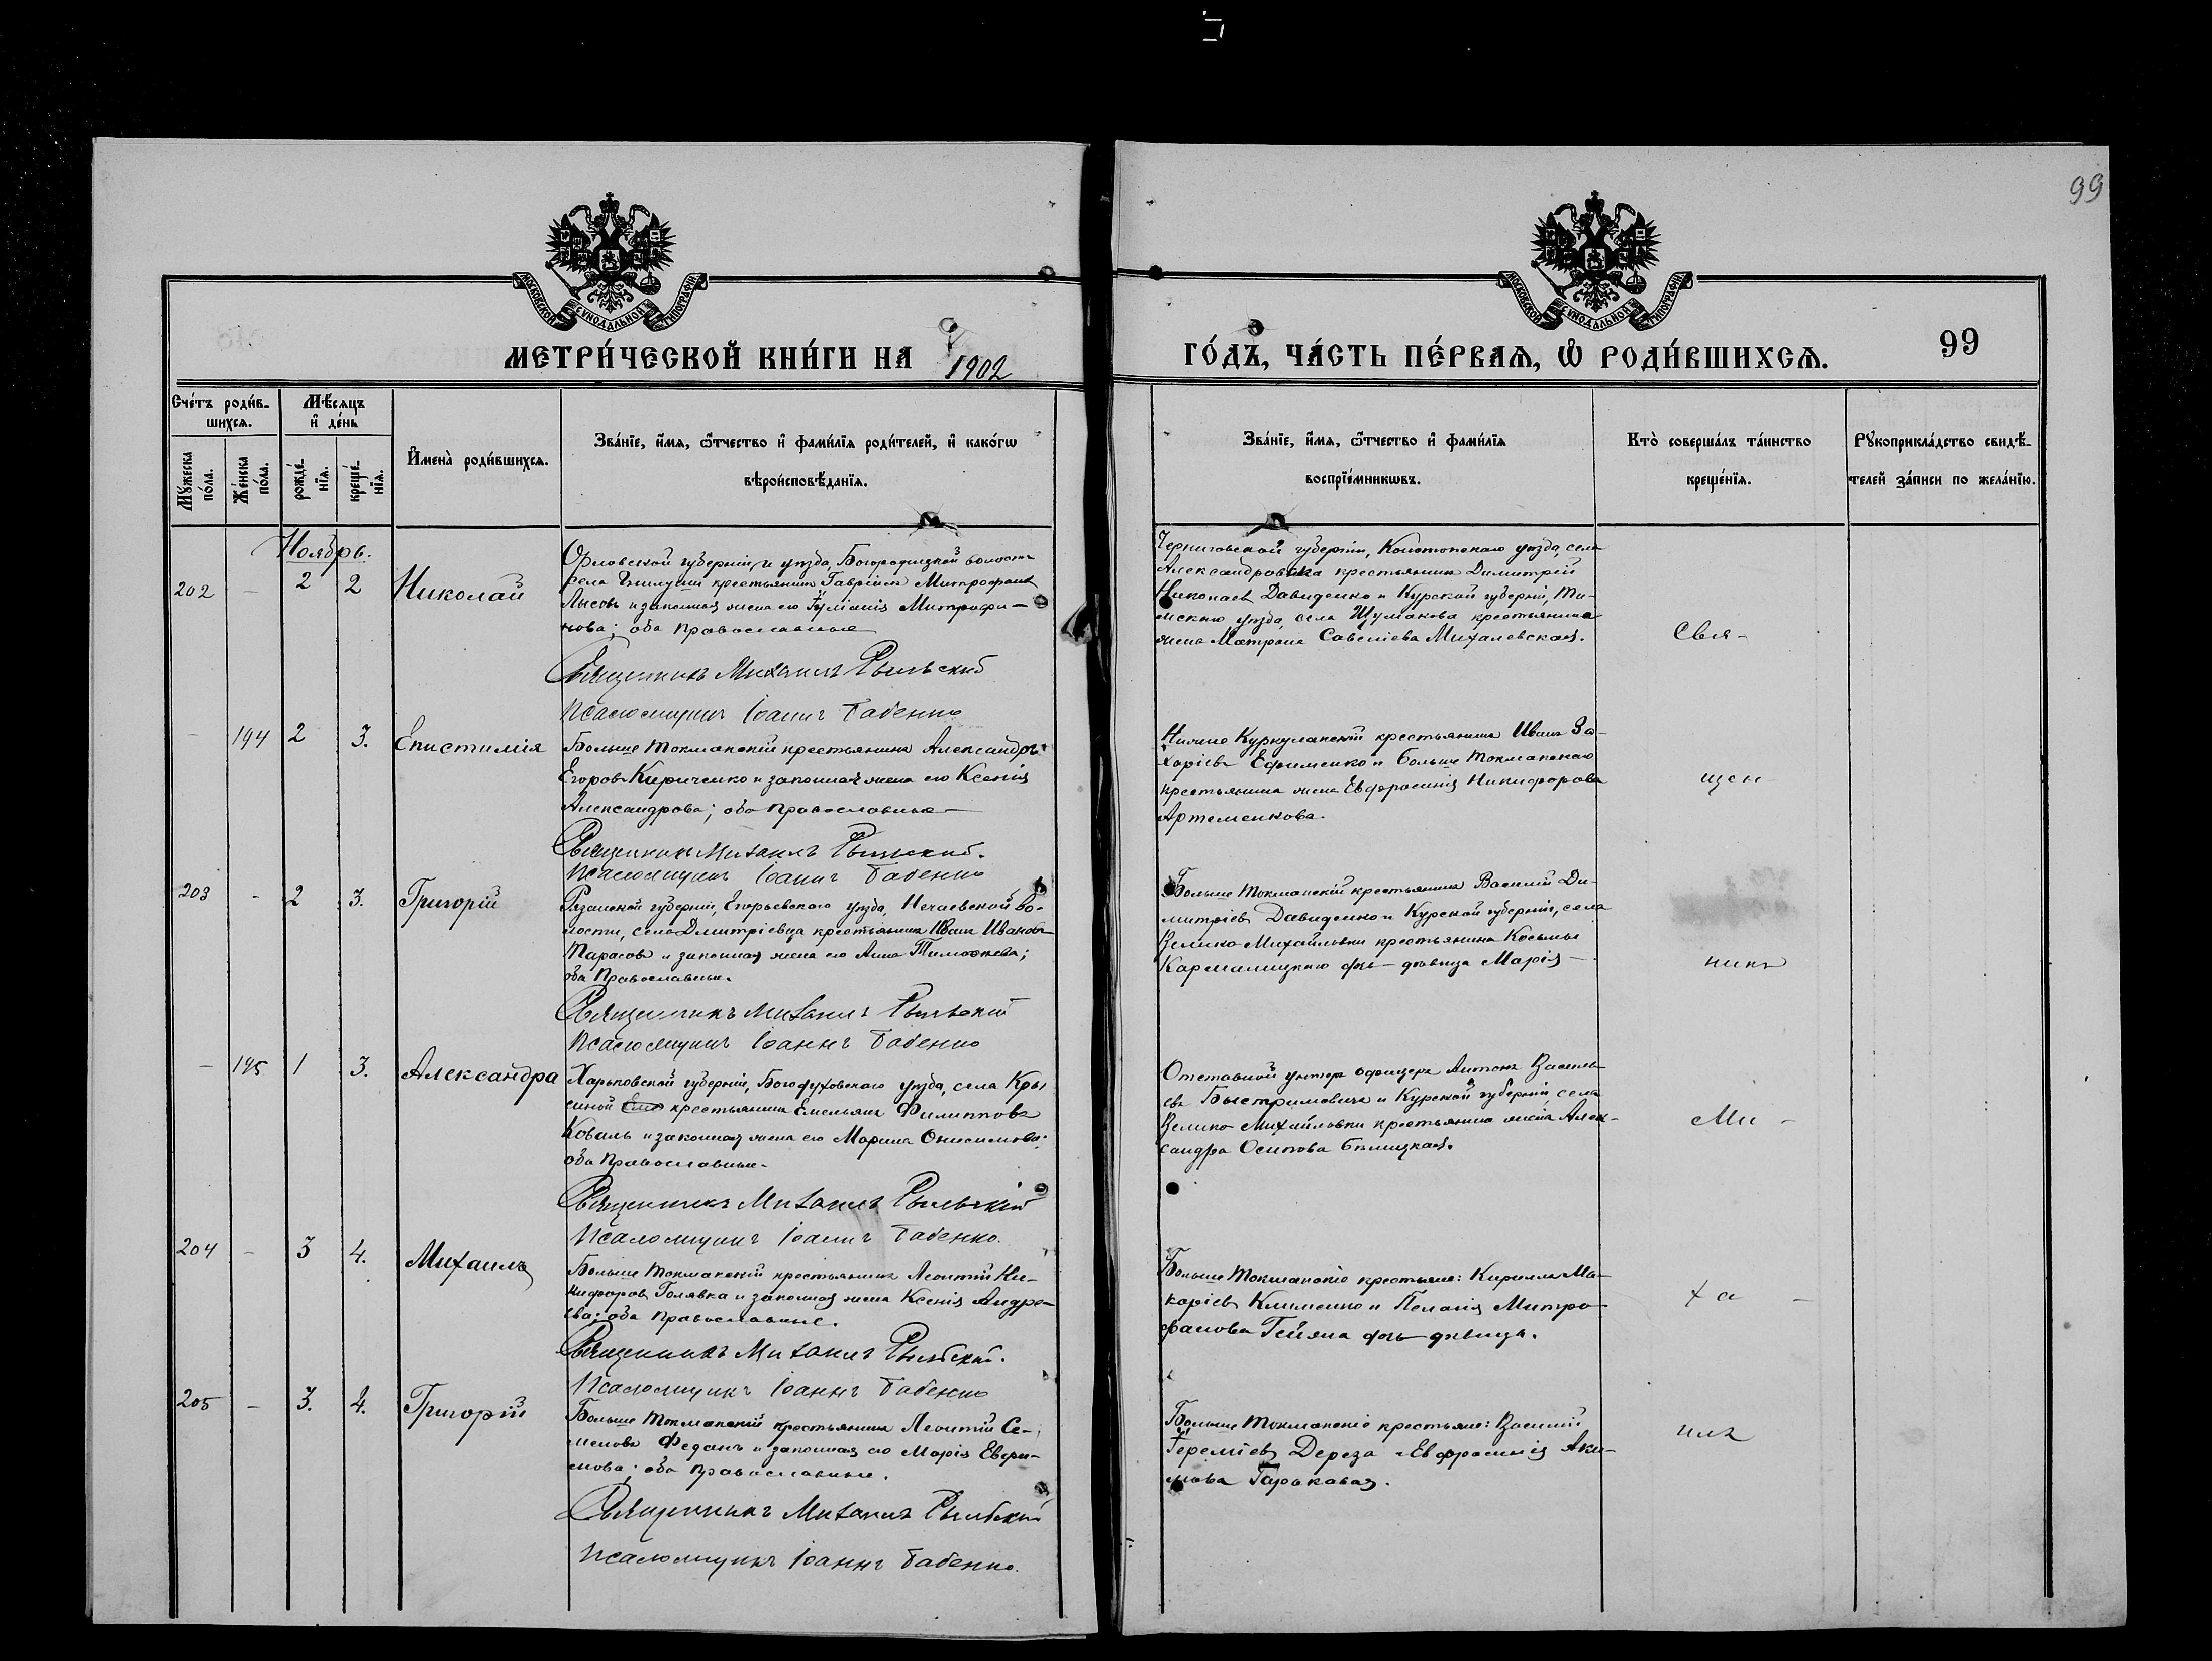 99
МОСКОВСКОЙ СУНОДАЛЬНОЙ ТИПОГРАФІИ
МОСКОВСКОЙ СУНОДАЛЬНОЙ ТИПОГРАФІИ
МЕТРИ́ЧЕСКОЙ КНИ́ГИ НА 1902
ГО́ДЪ, ЧА́СТЬ ПЕ́РВАѦ, Ѡ҆ РОДИ́ВШИХСѦ.
99
Сче́тъ роди́в-
шихсѧ.
Мѣ́сѧцъ
и҆ де́нь
Мꙋ́жеска по́ла.
Же́нска по́ла.
рожде́-
нїѧ.
креще́-
нїѧ.
И҆мена̀ роди́вшихсѧ.
Зва́нїе, и҆́мѧ, ѻ҆́тчество и҆ фами́лїѧ роди́телей, и҆ како́гѡ
вѣроисповѣ́данїѧ.
Зва́нїе, и҆́мѧ, ѻ҆́тчество и҆ фами́лїѧ
воспрїе́мникѡвъ.
Кто̀ соверша́лъ та́инство
креще́нїѧ.
Рꙋкоприкла́дство свидѣ́-
телей за́писи по жела́нїю.
Ноябрь.
202 – 2 2 Николай
Орловской губерніи и уѣзда, Богородицкой волости
села крестьянинъ Гавріилъ Митрофановъ
Лысовъ и законная жена его Іуліанія Митрофа-
нова; оба православные
Священникъ Михаилъ Рыльскій
Псаломщикъ Іоаннъ Бабенко
Черниговской губерніи, Конотопскаго уѣзда, села
Александровка крестьянинъ Димитрій
Николаевъ Давиденко и Курской губерніи, Ти-
мскаго уѣзда, села Шумакова крестьянина
жена Матрона Савеліева Михалевская.
Свя-
– 194 2 3. Епистимія
Больше Токмакскій крестьянинъ Александръ
Егоровъ Кириченко и законная жена его Ксенія
Александрова; оба православные
Священникъ Михаилъ Рыльскій.
Псаломщикъ Іоаннъ Бабенко
Нижне Куркулакскій крестьянинъ Иванъ За-
харіевъ Ефименко и Больше Токмакскаго
крестьянина жена Евфросинія Никифорова
Артеменкова.
щен-
203 - 2 3. Григорій
Рязанской губерніи, Егорьевскаго уѣзда, Нечаевской во-
лости, села Дмитріевца крестьянинъ Иванъ Ивановъ
Тарасовъ и законная жена его Анна Тимоѳеева;
оба Православные.
Священникъ Михаилъ Рыльскій
Псаломщикъ Іоаннъ Бабенко
Больше Токмакскій крестьянинъ Василій Ди-
митріевъ Давиденко и Курской губерніи, села
Велико-Михайловки крестьянина Косьмы
дочь дѣвица Марія
никъ
– 195 1 3. Александра
Харьковской губерніи, Богодуховскаго уѣзда, села Кры
синой крестьянинъ Емельянъ Филипповъ
Коваль и законная жена его Марина Онисимова;
оба Православные.
Священникъ Михаилъ Рыльскій
Псаломщикъ Іоаннъ Бабенко.
Отставной унтеръ офицеръ Антонъ Василь-
евъ Быстримовичъ и Курской губерніи, села
Велико-Михайловки крестьянина жена Алек-
сандра Осипова Бѣлицкая.
Ми-
204 – 3 4. Михаилъ
Больше Токмакскій крестьянинъ Леонтій Ни-
кифоровъ Голявка и законная жена Ксенія Андре-
ева; оба православные.
Священникъ Михаилъ Рыльскій.
Псаломщикъ Іоаннъ Бабенко
Больше Токмакскіе крестьяне: Кириллъ Ма-
каріевъ Клименко и Пелагія Митро-
фанова дочь дѣвица.
ха-
205 – 3. 4. Григорій
Больше Токмакскій крестьянинъ Леонтій Се-
меновъ Феданъ и законная его Марія Евфи-
мова; оба православные.
Священникъ Михаилъ Рыльскій
Псаломщикъ Іоаннъ Бабенко.
Больше Токмакскіе крестьяне: Василій
Іереміевъ Дереза и Евфросинія Аки-
мова Гарькавая.
илъ